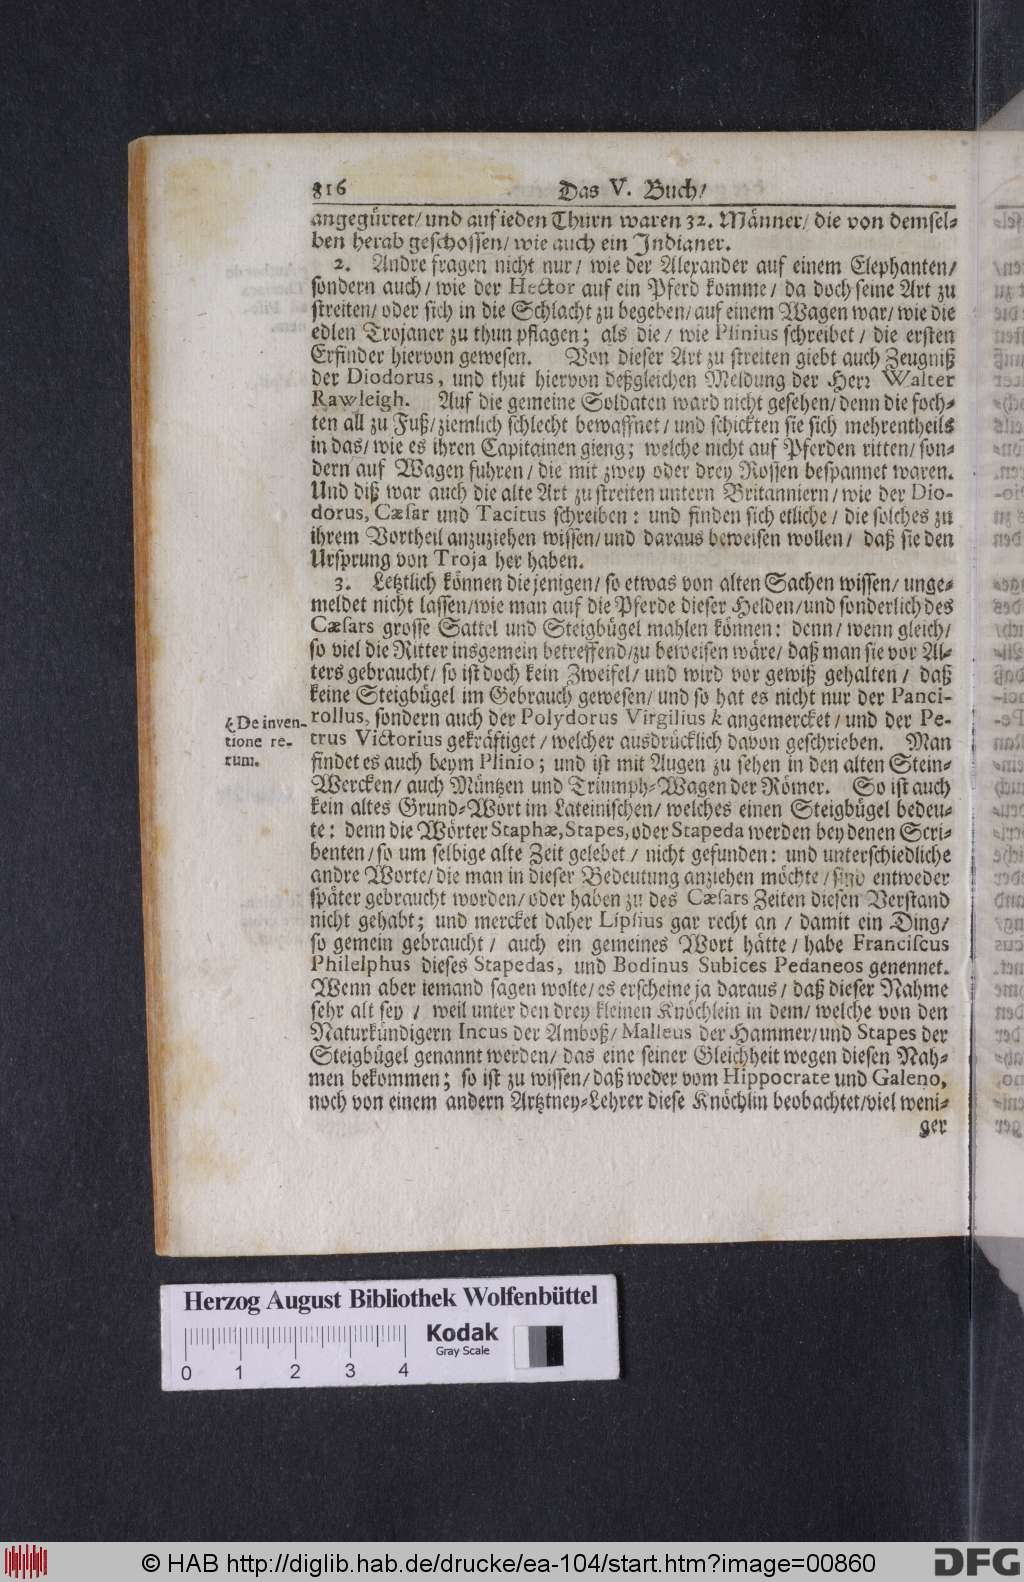 816 Das V. Buch/
angegürtet/ und auf ieden Thurn waren 32. Männer/ die von demsel-
ben herab geschossen/ wie auch ein Indianer.
2. Andre fragen nicht nur/ wie der Alexander auf einem Elephanten/
sondern auch/ wie der Hector auf ein Pferd komme/ da doch seine Art zu
streiten/ oder sich in die Schlacht zu begeben/ auf einem Wagen war/ wie die
edlen Trojaner zu thun pflagen; als die/ wie Plinius schreibet/ die ersten
Erfinder hiervon gewesen. Von dieser Art zu streiten giebt auch Zeugniß
der Diodorus, und thut hiervon deßgleichen Meldung der Herr Walter
Rawleigh. Auf die gemeine Soldaten ward nicht gesehen/ denn die foch-
ten all zu Fuß/ ziemlich schlecht bewaffnet/ und schickten sie sich mehrentheils
in das/ wie es ihren Capitainen gieng; welche nicht auf Pferden ritten/ son-
dern auf Wagen fuhren/ die mit zwey oder drey Rossen bespannet waren.
Und diß war auch die alte Art zu streiten untern Britanniern/ wie der Dio-
dorus, Cæsar und Tacitus schreiben: und finden sich etliche/ die solches zu
ihrem Vortheil anzuziehen wissen/ und daraus beweisen wollen/ daß sie den
Ursprung von Troja her haben.
3. Letztlich können die jenigen/ so etwas von alten Sachen wissen/ unge-
meldet nicht lassen/ wie man auf die Pferde dieser Helden/ und sonderlich des
Cæsars grosse Sattel und Steigbügel mahlen können: denn/ wenn gleich/
so viel die Ritter insgemein betreffend/ zu beweisen wäre/ daß man sie vor Al-
ters gebraucht/ so ist doch kein Zweifel/ und wird vor gewiß gehalten/ daß
keine Steigbügel im Gebrauch gewesen/ und so hat es nicht nur der Panci-
rollus, sondern auch der Polydorus Virgilius k angemercket/ und der Pe-
trus Victorius gekräftiget/ welcher ausdrücklich davon geschrieben. Man
findet es auch beym Plinio; und ist mit Augen zu sehen in den alten Stein-
Wercken/ auch Müntzen und Triumph-Wagen der Römer. So ist auch
kein altes Grund-Wort im Lateinischen/ welches einen Steigbügel bedeu-
te: denn die Wörter Staphæ, Stapes, oder Stapeda werden bey denen Scri-
benten/ so um selbige alte Zeit gelebet/ nicht gefunden: und unterschiedliche
andre Worte/ die man in dieser Bedeutung anziehen möchte/ sind entweder
später gebraucht worden/ oder haben zu des Cæsars Zeiten diesen Verstand
nicht gehabt; und mercket daher Lipsius gar recht an/ damit ein Ding/
so gemein gebraucht/ auch ein gemeines Wort hätte/ habe Franciscus
Philelphus dieses Stapedas, und Bodinus Subices Pedaneos genennet.
Wenn aber iemand sagen wolte/ es erscheine ja daraus/ daß dieser Nahme
sehr alt sey/ weil unter den drey kleinen Knöchlein in dem/ welche von den
Naturkündigern Incus der Amboß/ Malleus der Hammer/ und Stapes der
Steigbügel genannt werden/ das eine seiner Gleichheit wegen diesen Nah-
men bekommen; so ist zu wissen/ daß weder vom Hippocrate und Galeno,
noch von einem andern Artztney-Lehrer diese Knöchlin beobachtet/ viel weni-
ger
k De inven-
tione re-
rum.
Herzog August Bibliothek Wolfenbüttel
Kodak
Gray Scale
0 1 2 3 4
© HAB http://diglib.hab.de/drucke/ea-104/start.htm?image=00860
DFG